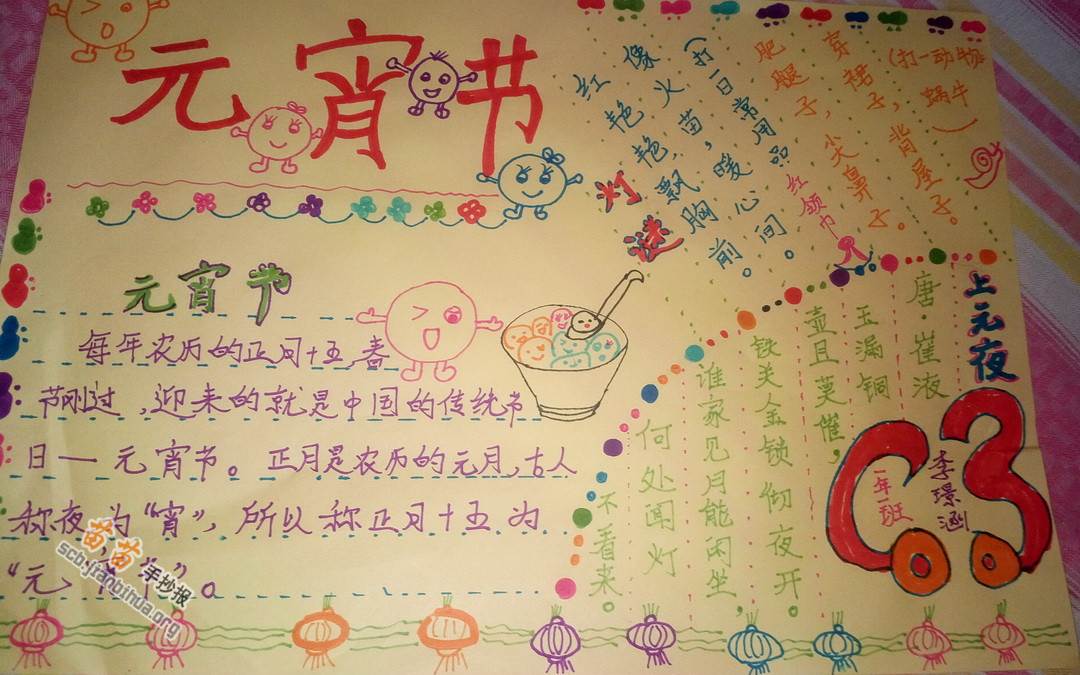 元宵节
元宵节
每年农历的正月十五,春
节刚过,迎来的就是中国的传统节
日一元宵节。正月是农历的元月,古人
称夜为“宵”,所以称正月十五为
“元
”。
灯谜
红艳艳,飘胸前。
像火苗,暖心间。
(打一日常用品
红领巾)
肥腿子,尖鼻子。
穿裙子,背屋子。
(打一动物
蜗牛)
上元夜
唐·崔液
玉漏铜
壶且莫催,
铁关金锁彻夜开。
谁家见月能闲坐,
何处闻灯
不看来。
一年班
李璟涵
苗苗手抄报
scb.jianbihua.org